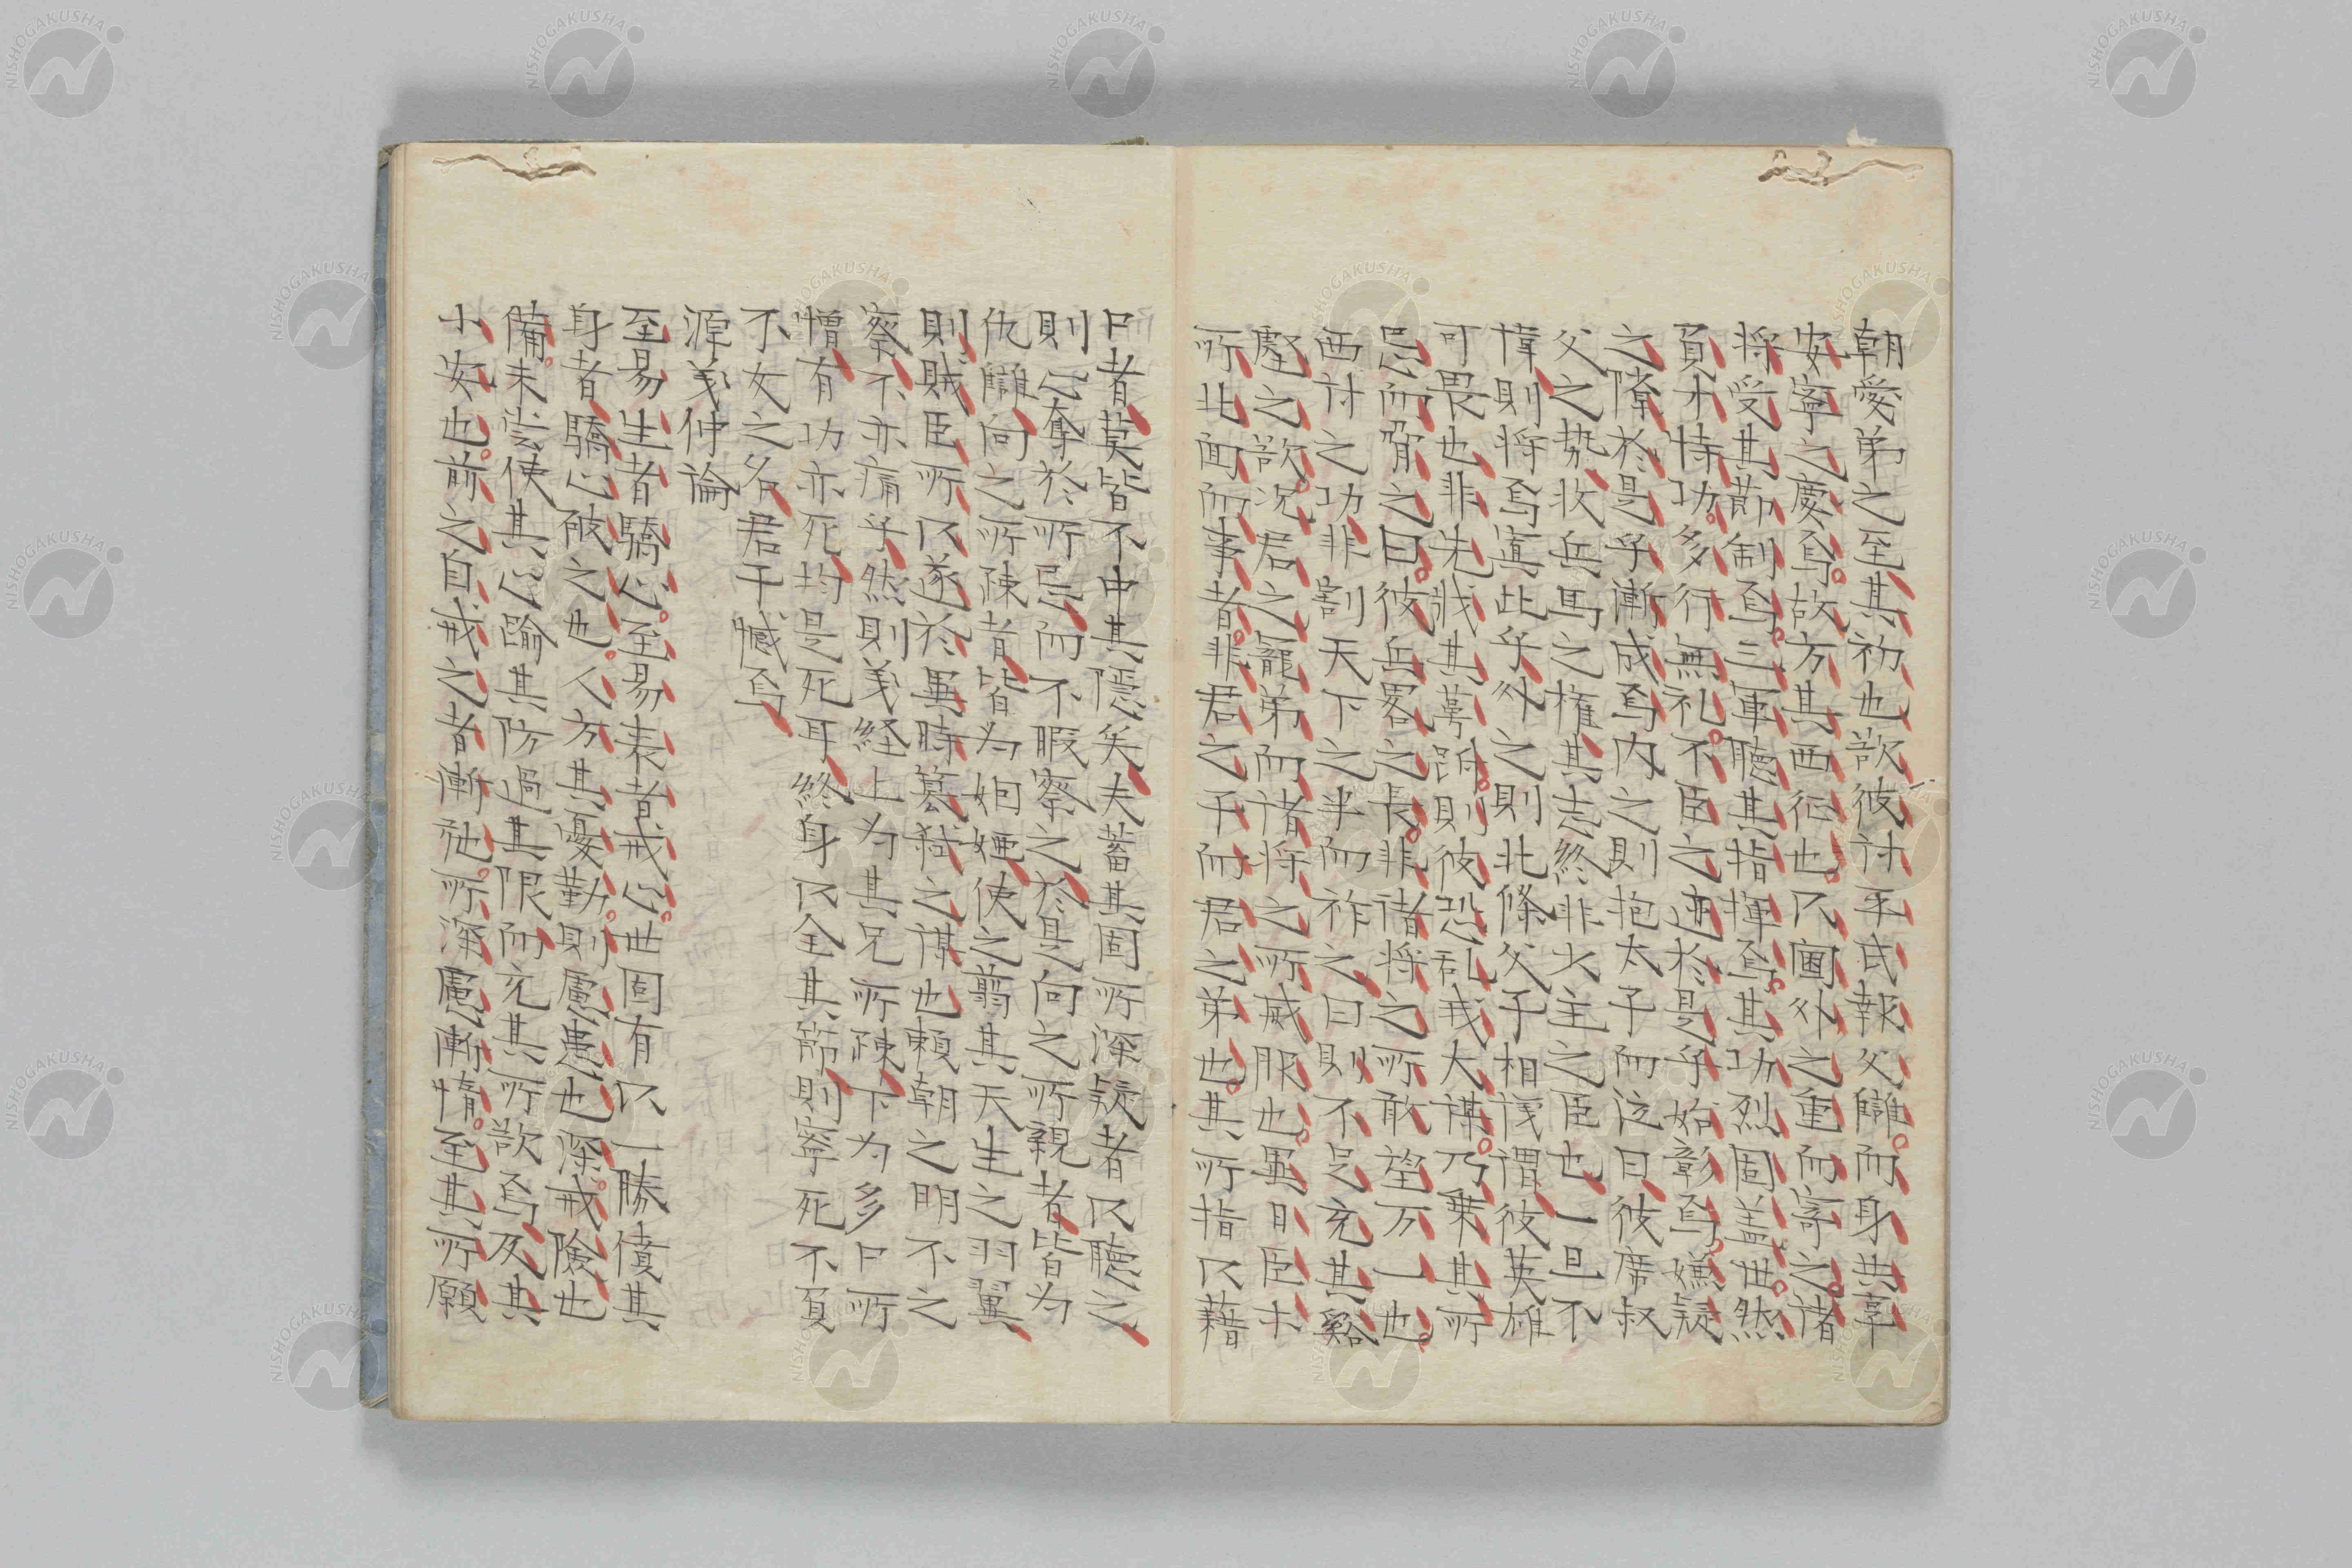 朝愛弟之至其初也欲彼討平氏報父讎而身共享
安寧之慶焉故方其西征也以閫外之重而寄之諸
将受其節制焉三軍聴其指揮焉其功烈固盖世然
負才恃功多行無礼不臣之迹於是乎始彰焉嫌疑
之隙於是乎漸成焉内之則抱太子而泣曰彼席叔
父之勢收兵馬之権其志終非大主之臣也一旦不
偉則将焉寘此乎外之則北條父子相议謂彼英雄
可畏也非先戕其萼跗則彼恐乱我大謀乃乗其所
忌而脅之曰彼兵畧之長非諸将之所敢望万一也
西討之功非割天下之半而祚之曰則不足充其谿
壑之欲况君之寵弟而諸将之所威服也異日臣士
所北面而事者非君之子而君之弟也其所指以藉
口者莫皆不中其隠矣夫蓄其固所深疑者以聴之
則心奪於所忌而不暇察之於是向之所親者皆為
仇讎向之所疎者皆為姻婭使之翦其天生之羽翼
則賊臣所以遂於異時簒弑之謀也頼朝之明不之
察不亦痛乎然則義経上為其兄所疎下為多口所
憎有功亦死均是死耳終身以全其節則寧死不負
不友之名君子憾焉
源義仲論
至易生者驕心至易衰者戒心世固有以一勝僨其
身者驕心破之也人方其憂勤則慮患也深戒険也
備未尝使其心踰其防過其限而充其所欲焉及其
小安也前之自戒之者漸弛所深慮漸惰至其所願